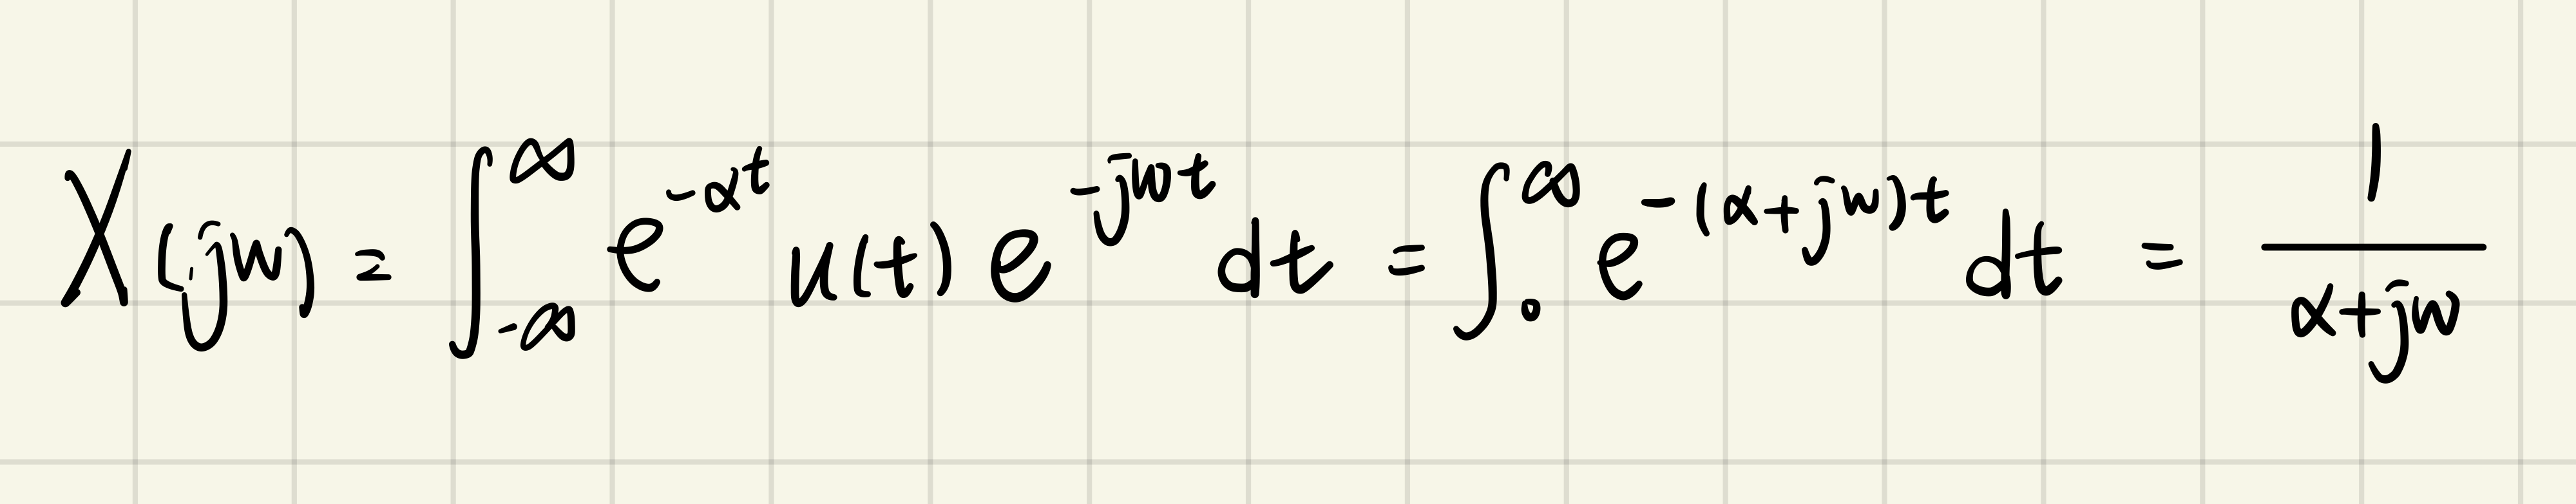 X(jω) = ∫_{-∞}^{∞} e^{-αt} u(t) e^{-jωt} dt = ∫_{0}^{∞} e^{-(α+jω)t} dt = \frac{1}{α+jω}